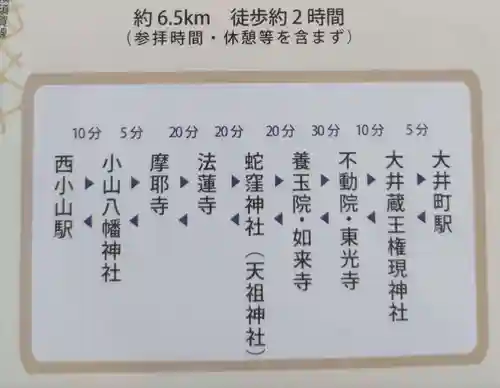 約6.5km 徒歩約2時間
（参拝時間・休憩等を含まず）
10分 5分 20分 20分 20分 30分 10分 5分
西小山駅
小山八幡神社
摩耶寺
法蓮寺
蛇窪神社（天祖神社）
養玉院・如来寺
不動院・東光寺
大井蔵王権現神社
大井町駅